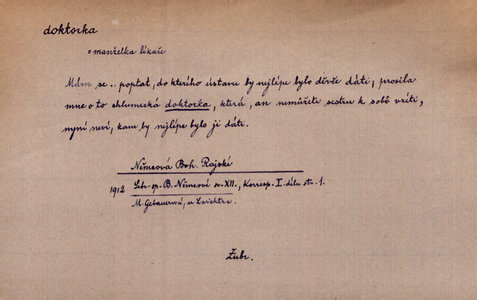 doktorka
= manželka lékaře
Mám se .. poptat, do kterého ústavu by nejlépe bylo děvče dáti; prosila
mne o to chlumecká doktorka, která, an nemůžete sestru k sobě vzíti,
nyní neví, kam by nejlépe bylo ji dáti.
Němcová Boh. Rajské
1912 Seb. sp. B. Němcové sv. XII., Korresp. I. díla str. 1.
M. Gebauerová, u Laichtra.
Zubr.